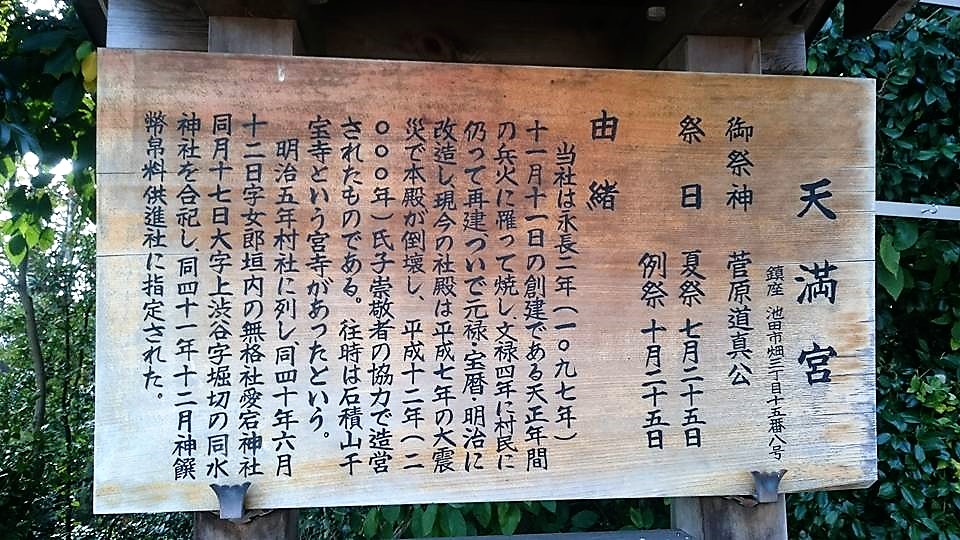 天満宮
鎮座 池田市畑三丁目十五番八号
御祭神 菅原道真公
祭日 夏祭 七月二十五日
例祭 十月二十五日
由緒
当社は永長二年(一〇九七年)
十一月十一日の創建である天正年間
の兵火に雁って焼し、文禄四年に村民に
仍って再建ついで元禄・宝暦・明治に
改造し現今の社殿は平成七年の大震
災で本殿が倒壊し、平成十二年(二
〇〇〇年)氏子崇敬者の協力で造営
されたものである。往時は石積山千
宝寺という宮寺があったという。
明治五年村社に列し、同四十年六月
十二日字女郎垣内の無格社愛宕神社
同月十七日大字上渋谷字堀切の同水
神社を合祀し、同四十一年十二月神饌
幣帛料供進社に指定された。